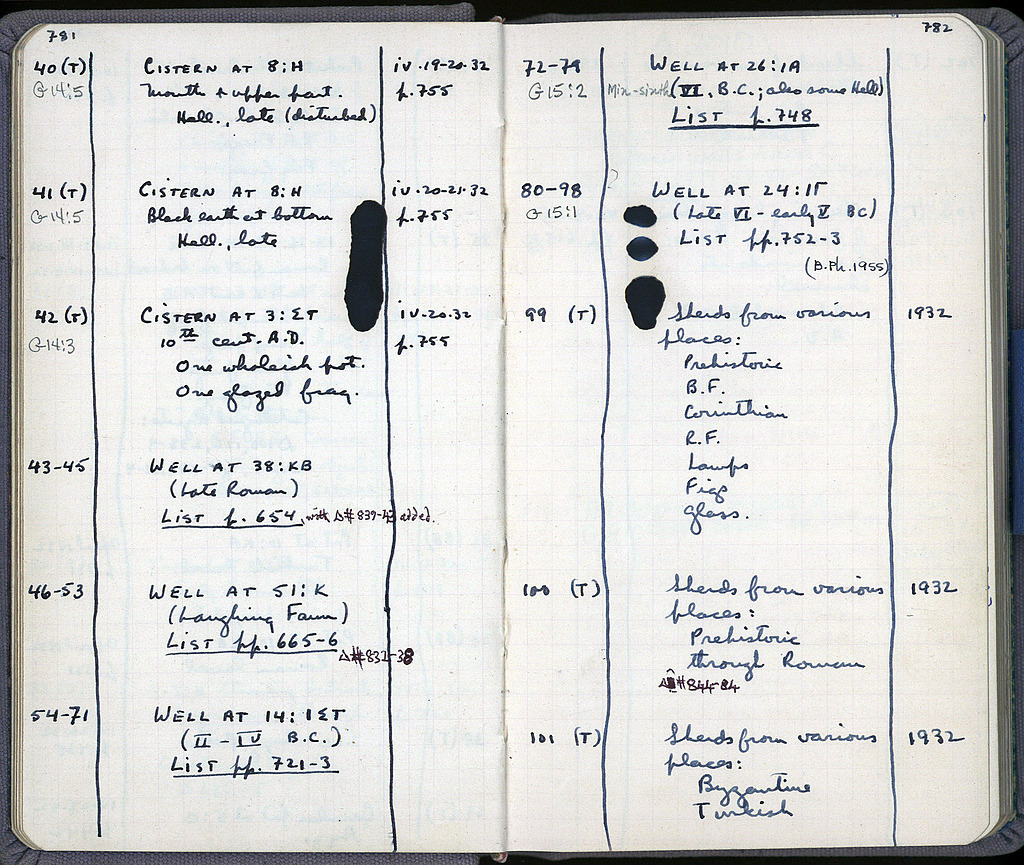 781
40 (T) CISTERN AT 8:H iv.19-20.32
G 14:5 Mouth + upper part. p.755
Hell., late (disturbed)
41 (T) CISTERN AT 8:H iv.20-21.32
G 14:5 Black earth at bottom p.755
Hell., late
42 (T) CISTERN AT 3:ΣΤ iv.20.32
G 14:3 10th cent. A.D. p.755
One wholeish pot.
One glazed frag.
43-45 WELL AT 38:KB
(Late Roman)
LIST p. 654, with Δ# 839-43 added.
46-53 WELL AT 51:K
(Laughing Faun)
LIST pp. 665-6
Δ#832-38
54-71 WELL AT 14:ΙΣΤ
(II - IV B.C.)
LIST pp. 721-3
782
72-79 WELL AT 26:ΙΑ
G 15:2 (VI. B.C.; also some Hell)
LIST p.748
80-98 WELL AT 24:ΙΓ
G 15:1 (Late VI - early V BC)
LIST pp.752-3
(B.Ph.1955)
99 (T) Sherds from various 1932
places:
Prehistoric
B.F.
Corinthian
R.F.
Lamps
Figs
Glass.
100 (T) Sherds from various 1932
places:
Prehistoric
through Roman
#844-84
101 (T) Sherds from various 1932
places:
Byzantine
Turkish